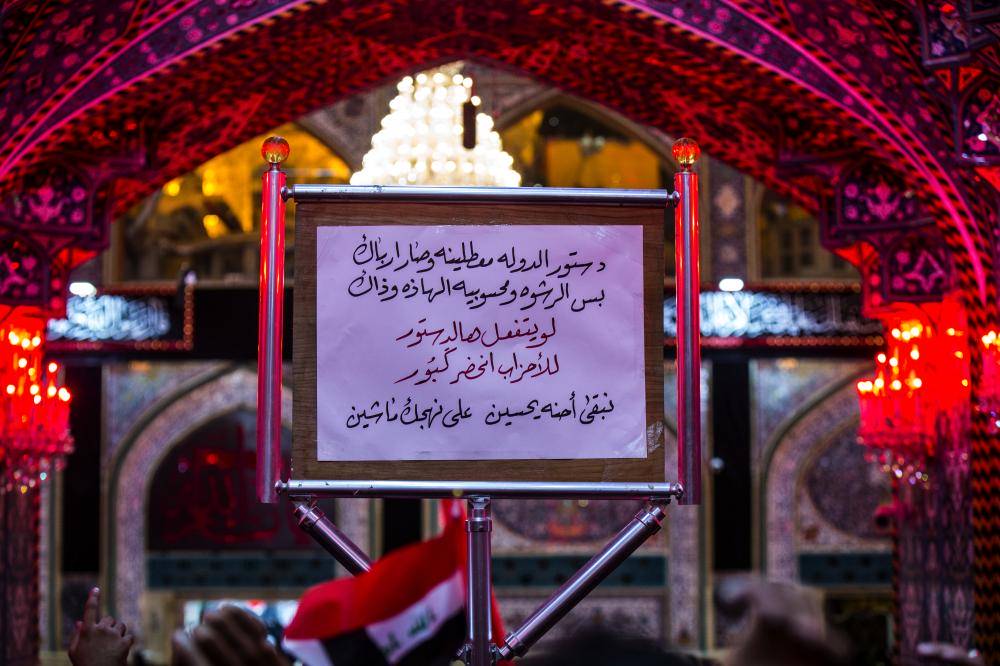 دستور الدوله معطلينه وصار ارباك
بس الرشوه ومحسوبيه الهاذه وذاك
لو يتفعل هالدستور
للأحزاب انحضر گبور
نبقى أحنه يحسين على نهجك ماشين